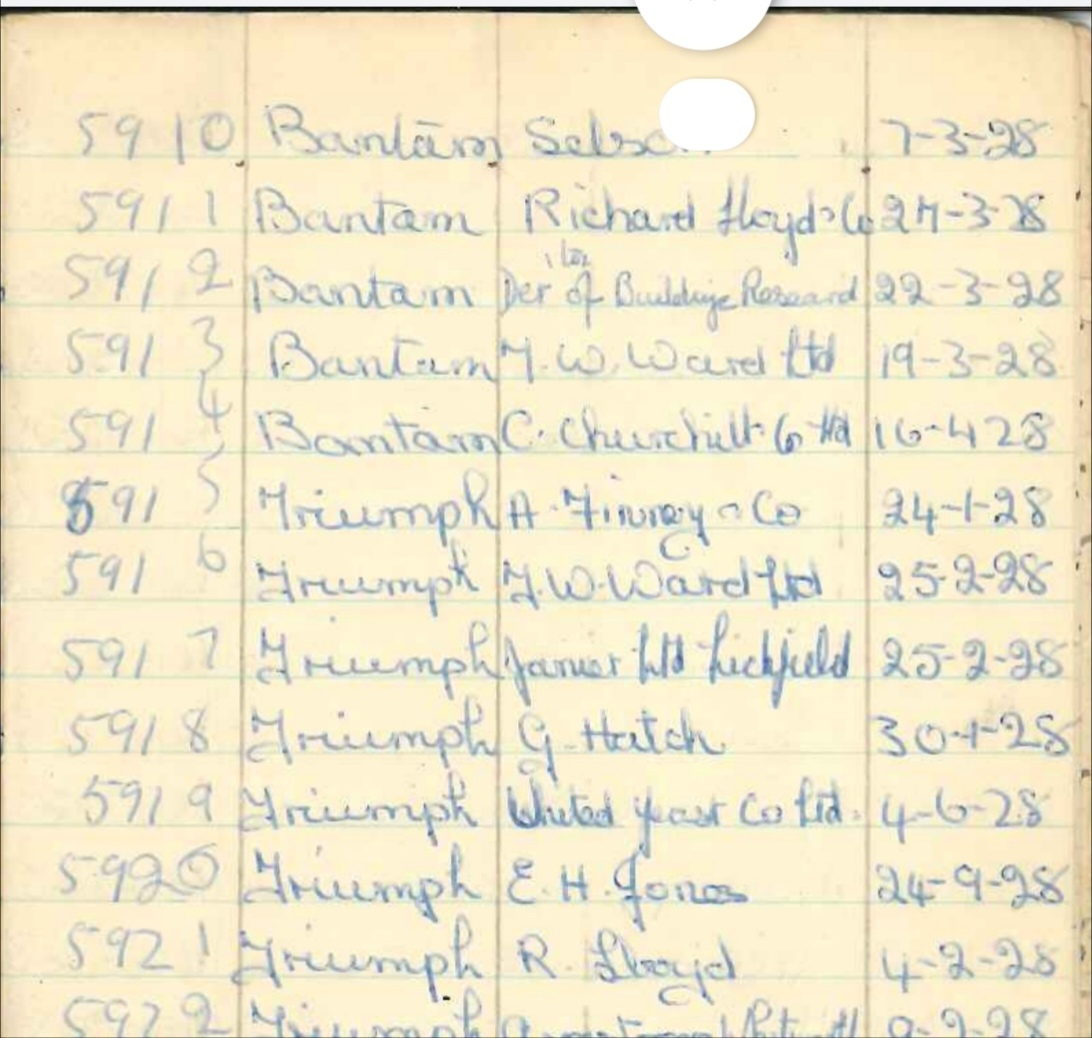 5910 Bantam Selso 7-3-28
5911 Bantam Richard Lloyd & Co 27-3-28
5912 Bantam Der of Building Research 22-3-28
5913 Bantam T.W. Ward Ltd 19-3-28
5914 Bantam C. Churchill & Co Ltd 16-4-28
5915 Triumph A. Finney & Co 24-1-28
5916 Triumph T.W. Ward Ltd 25-2-28
5917 Triumph Ltd Lichfield 25-2-28
5918 Triumph G. Hatch 30-1-28
5919 Triumph United Yeast Co Ltd. 4-6-28
5920 Triumph E.H. Jones 24-9-28
5921 Triumph R. Lloyd 4-2-28
5922 Triumph 9-2-28